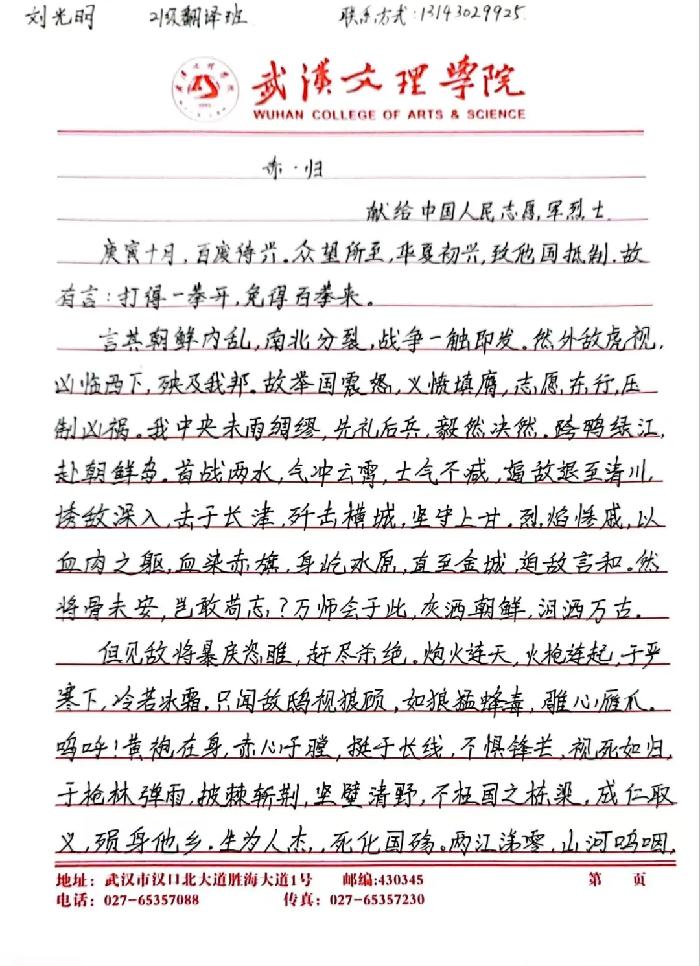 刘光明 21级翻译班 联系方式:13143029925
武漢文理學院
WUHAN COLLEGE OF ARTS & SCIENCE
赤·归
献给中国人民志愿军烈士
庚寅十月,百废待兴。众望所至,华夏初兴,致他国抵制。故
有言:打得一拳开,免得百拳来。
言其朝鲜内乱,南北分裂,战争一触即发。然外敌虎视,
凶临西下,殃及我邦。故举国震怒,义愤填膺,志愿东行,压
制凶祸。我中央未雨绸缪,先礼后兵,毅然决然。跨鸭绿江,
赴朝鲜岛。首战两水,气冲云霄,士气不减,逼敌退至清川,
诱敌深入,击于长津,歼击横城,坚守上甘。烈焰惨戚,以
血肉之躯,血染赤旗,身屹水原,直至金城,迫敌言和。然
将骨未安,岂敢苟忘?万师会于此,灰洒朝鲜,泪洒万古。
但见敌将暴戾恣睢,赶尽杀绝。炮火连天,火枪连起,于严
寒下,冷若冰霜。只闻敌鸱视狼顾,如狼猛蜂毒,雕心雁爪。
呜呼!黄袍在身,赤心于膛,挺于长线,不惧锋芒,视死如归,
于枪林弹雨,披棘斩荆,坚壁清野,不枉国之栋梁,成仁取
义,殒身他乡。生为人杰,死化国殇。两江涕零,山河呜咽,
地址:武汉市汉口北大道胜海大道1号 邮编:430345 第 页
电话:027-65357088 传真:027-65357230